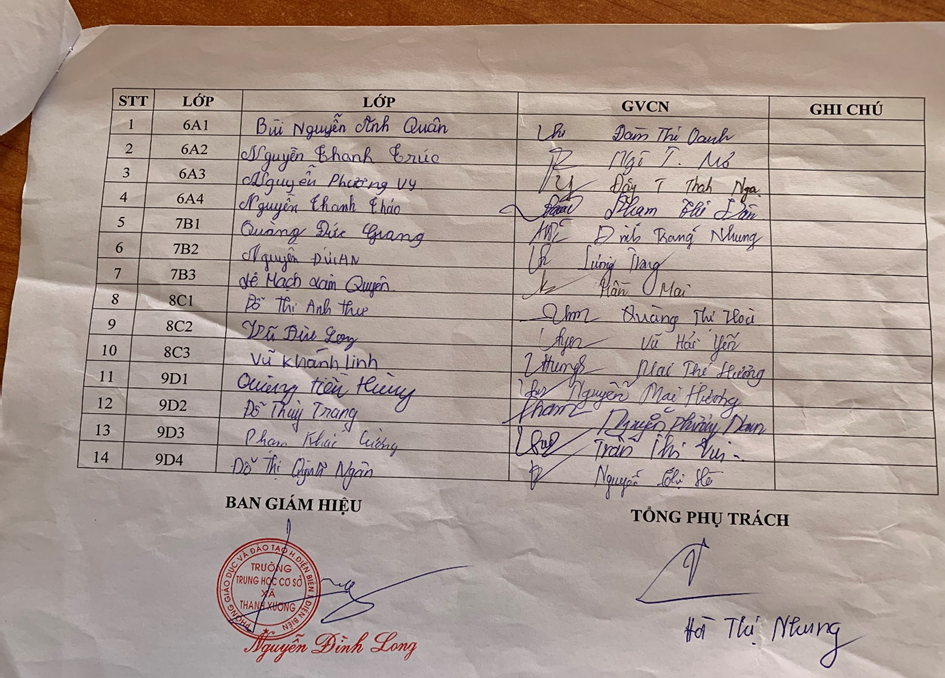 STT LỚP LỚP GVCN GHI CHÚ
1 6A1 Bùi Nguyễn Anh Quân Đàm Thị Oanh
2 6A2 Nguyễn Thanh Trúc Ngô T. Mơ
3 6A3 Nguyễn Phương Vy T Thah Nga
4 6A4 Nguyễn Thanh Thảo Phạm Thị
5 7B1 Quàng Đức Giang Đinh Trang Nhung
6 7B2 Nguyễn ĐứcAN
7 7B3 Lê Mạch Quyên Mai
8 8C1 Đỗ Thị Anh Thư Quàng Thị Hoài
9 8C2 Vũ Đức Long Vũ Hải Yến
10 8C3 Vũ Khánh Linh Mai Thị Hương
11 9D1 Quàng Tiến Hùng Nguyễn Mai Hương
12 9D2 Đỗ Thùy Trang Nguyễn
13 9D3 Phạm Khắc Cường Trần Thị
14 9D4 Đỗ Thị Quỳnh Ngân Nguyễn Thị
BAN GIÁM HIỆU TỔNG PHỤ TRÁCH
PHÒNG GIÁO DỤC VÀ ĐÀO TẠO H. ĐIỆN BIÊN T. ĐIỆN BIÊN
TRƯỜNG
TRUNG HỌC CƠ SỞ
XÃ
THANH XƯƠNG
Nguyễn Đình Long Hà Thị Nhung